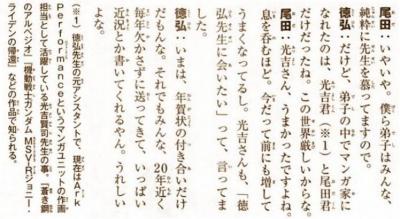 尾田：いやいや。僕ら弟子はみんな、
純粋に先生を慕ってますので。
徳弘：だけど、弟子の中でマンガ家に
なれたのは、光吉君（※1）と尾田君
だけだたね。この世界厳しいからな。
尾田：光吉さん、うまかったですよね。
息を呑むほど。今だって前にも増して
うまくなってるし。光吉さんも、「徳
弘先生に会いたい」って、言ってま
した。
徳弘：いまは、年賀状の付き合いだけ
だもんな。それでもみんな、20年近く
毎年欠かさずに送ってきて、いっぱい
近況とか書いてくれるやん。うれしい
よな。
【※1】徳弘先生の元アシスタントで、現在はArk
Performanceというマンガユニットの作画
担当として活躍している光吉賢司先生の事。『蒼き鋼
のアルペジオ』『機動戦士ガンダムMSV-Rジョニー・
ライデンの帰還』などの作品で知られる。